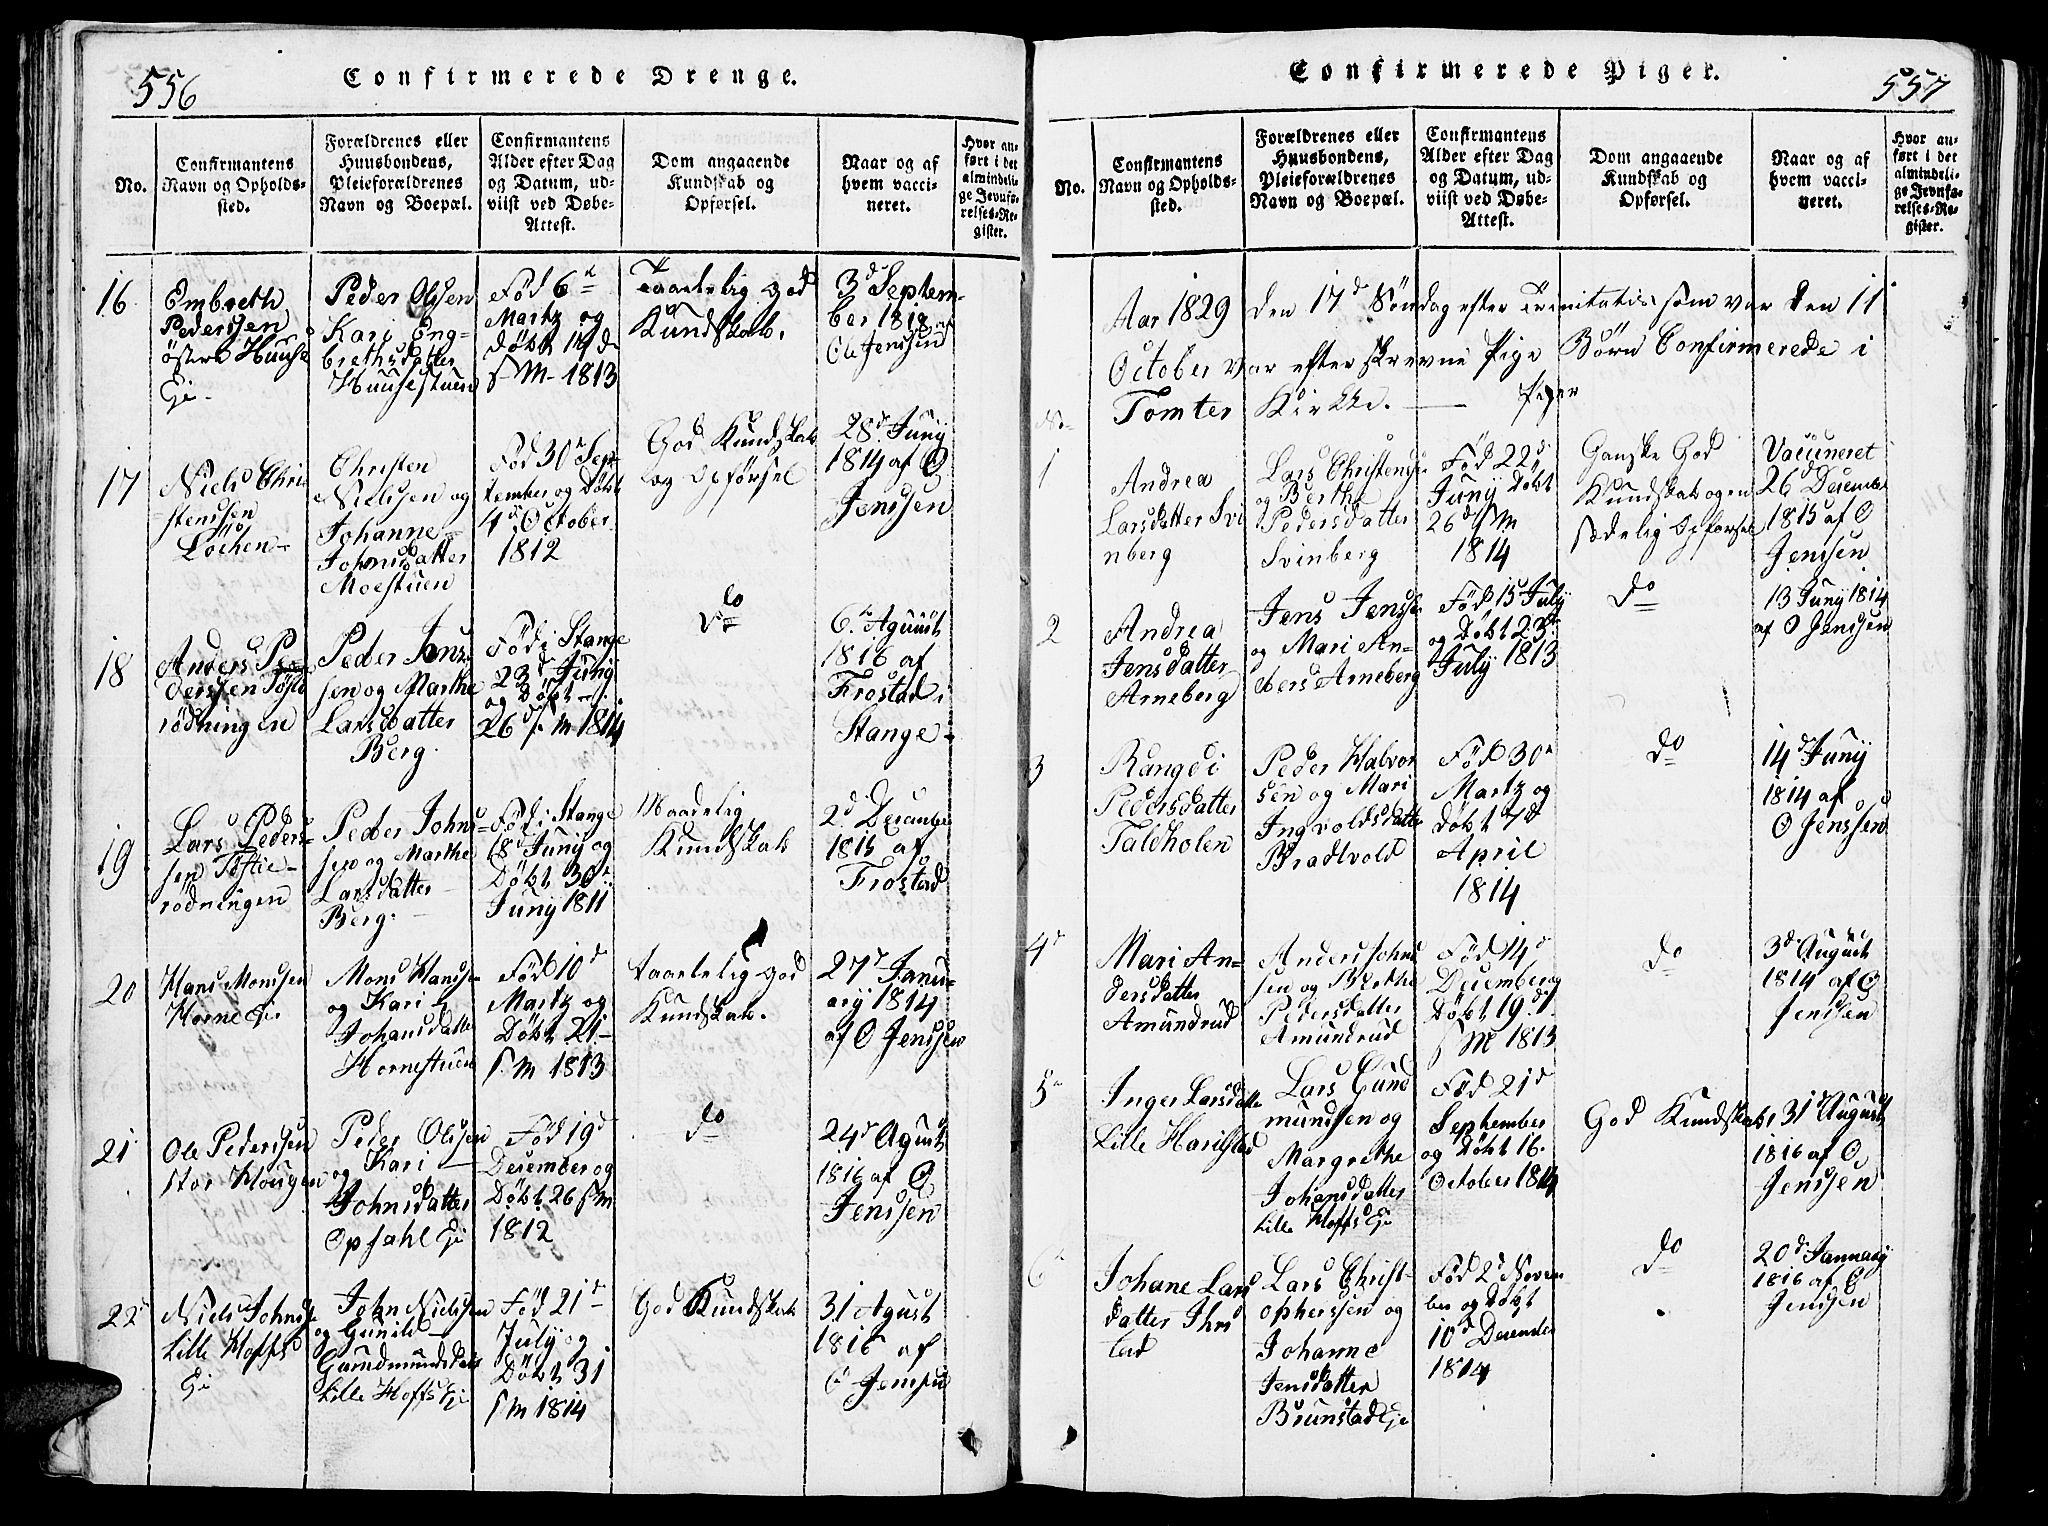 556
Confirmerede Drenge.
No.
Confirmantens
Navn og Opholds-
sted.
Forældrenes eller
Huusbondens,
Pleieforældrenes
Navn og Boepæl.
Confirmantens
Alder efter Dag
og Datum, ud-
viist ved Døbe-
Attest.
Dom angaaende
Kundskab og
Opførsel.
Naar og af
hvem vacci-
neret.
Hvor an-
ført i det
almindeli-
ge Jevnfø-
relses-Re-
gister.
16
Embreth
Pederssen
Huuse
Eje
Peder Olssen
Kari Eng-
brethsdatter
Huusestuen
Fød 6te
Martz og
Døbt 14d
s M 1813
Taarlelig god
Kundskab.
3d Septem-
ber 1812 af
Ole Jenssen
17
Niels Chri
stenssen
Löchen
Christen
Nielssen og
Johanne
Johnsdatter
Moestuen
Fød 30te Sep-
tember og Døbt
4d October
1812
God Kundskab
og Opførsel
28d Juny
1814 af O
Jenssen
18
Anders Pe-
derssen
rödningen
Peder Jons-
sen og Marthe
Larsdatter
Berg.
Fød i Stange
23d Juny
og Døbt
26d s. M 1814
do
6te Agunst
1816 af
Frostad i
Stange
19
Lars Peders-
sen
rödningen
Peder Johns-
sen og Marthe
Larsdatter
Berg.
Fød i Stange
18d Juny og
Døbt 30te
Juny 1811
Maadelig
Kundskab
2d Decembr
1815 af
Frostad
20
Hans Monssen
Horne Eje
Mons Hanse-
og Kari
Johansdatter
Hornestuen
Fød 10d
Martz og
Døbt 21
s. M 1813
taarlelig god
Kundskab.
27d Janu-
ary 1814
af O Jenssen
21
Ole Pederssen
stor Hougen
Peder Olssen
og Kari
Johnsdatter
Opsahl Eje
Fød 19d
December og
Døbt 26 s M
1812
do
24d Agust
1816 af O
Jenssen
22
Niels Johnsse
Lille Hoffs
Eje
John Nielssen
og Gunild
Gundmundsdatt
Lille Hoffs Eje
Fød 21d
July og
Døbt 31
s M 1814
God Kundskab
31 Agust
1816 af
O Jenssen
Confirmerede Piger.
557
No.
Confirmantens
Navn og Opholds-
sted.
Forældrenes eller
Huusbondens,
Pleieforældrenes
Navn og Boepæl.
Confirmantens
Alder efter Dag
og Datum, ud-
viist ved Døbe-
Attest.
Dom angaaende
Kundskab og
Opførsel.
Naar og af
hvem vacci-
neret.
Hvor an-
ført i det
almindeli-
ge Jevnfø-
relses-Re-
gister.
Aar 1829 den 17d Søndag efter Trinitatis som var den 11
October var efterskrevne Pige Børn Confirmerede i
Tomter Kirkke.
No
Piger
1
Andrea
Larsdatter Svi
nberg
Lars Christensse
og Berthe
Pedersdatter
Svinberg
Fød 22d
Juny Døbt
26d s M
1814
Ganske God
Kundskab og en
sædelig Opførsel
Vaccineret
26 Decembe
1815 af O
Jenssen
2
Andrea
Jensdatter
Arneberg
Jens Jensse
og Mari An-
ders Arneberg
Fød 15 July
og Døbt 23d
July 1813
do
13 Juny 1814
af O Jenssen
3
Rangdi
Pedersdatter
Taldholen
Peder Halvor
sen og Mari
Ingvoldsdatte
Bradtvold
Fød 30te
Martz og
Døbt 7d
April
1814
do
14d Juny
1814 af
O Jenssen
4d
Mari An-
dersdatter
Amundrud
Anders Johns
sen og Berthe
Pedersdatter
Amundrud
Fød 14d
December og
Døbt 19.d
s M 1813
do
3d August
1814 af O
Jenssen
5te
Inger Larsdatte
Lille Harilstad
Lars Gund
mundsen og
Margrethe
Johansdatter
Lille Hoffs Eje
Fød 21d
September
og Døbt 16.
October 1814
God Kundskab
31 August
1816 af O
Jenssen
6te
Johane Lars
datter Ihrs
tad
Lars Christ-
opherssen og
Johanne
Jensdatter
Brunstad Eje
Fød 2d Novem
ber og Døbt
10d December
1814
do
20d January
1816 af O
Jenssen